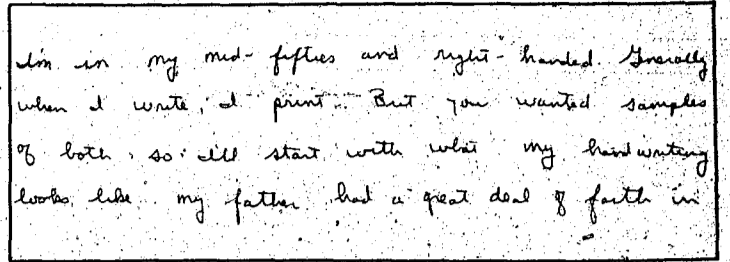 I'm in my mid-fifties and right-handed. Generally
when I write, I print. But you wanted samples
of both, so I'll start with what my handwriting
looks like. My father had a great deal of faith in